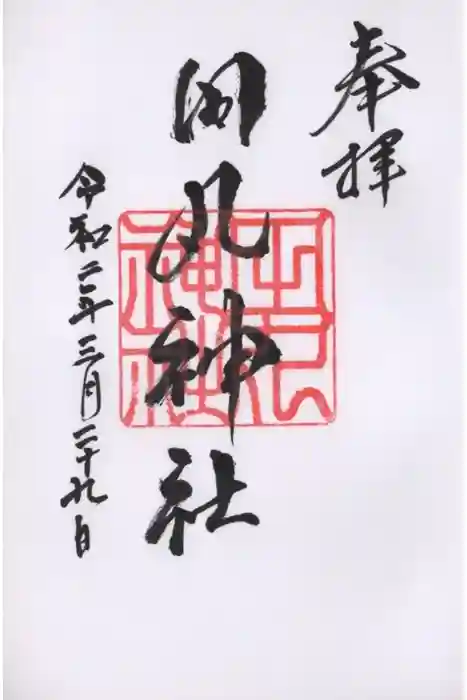 奉拝
神社
令和二年三月二十九日